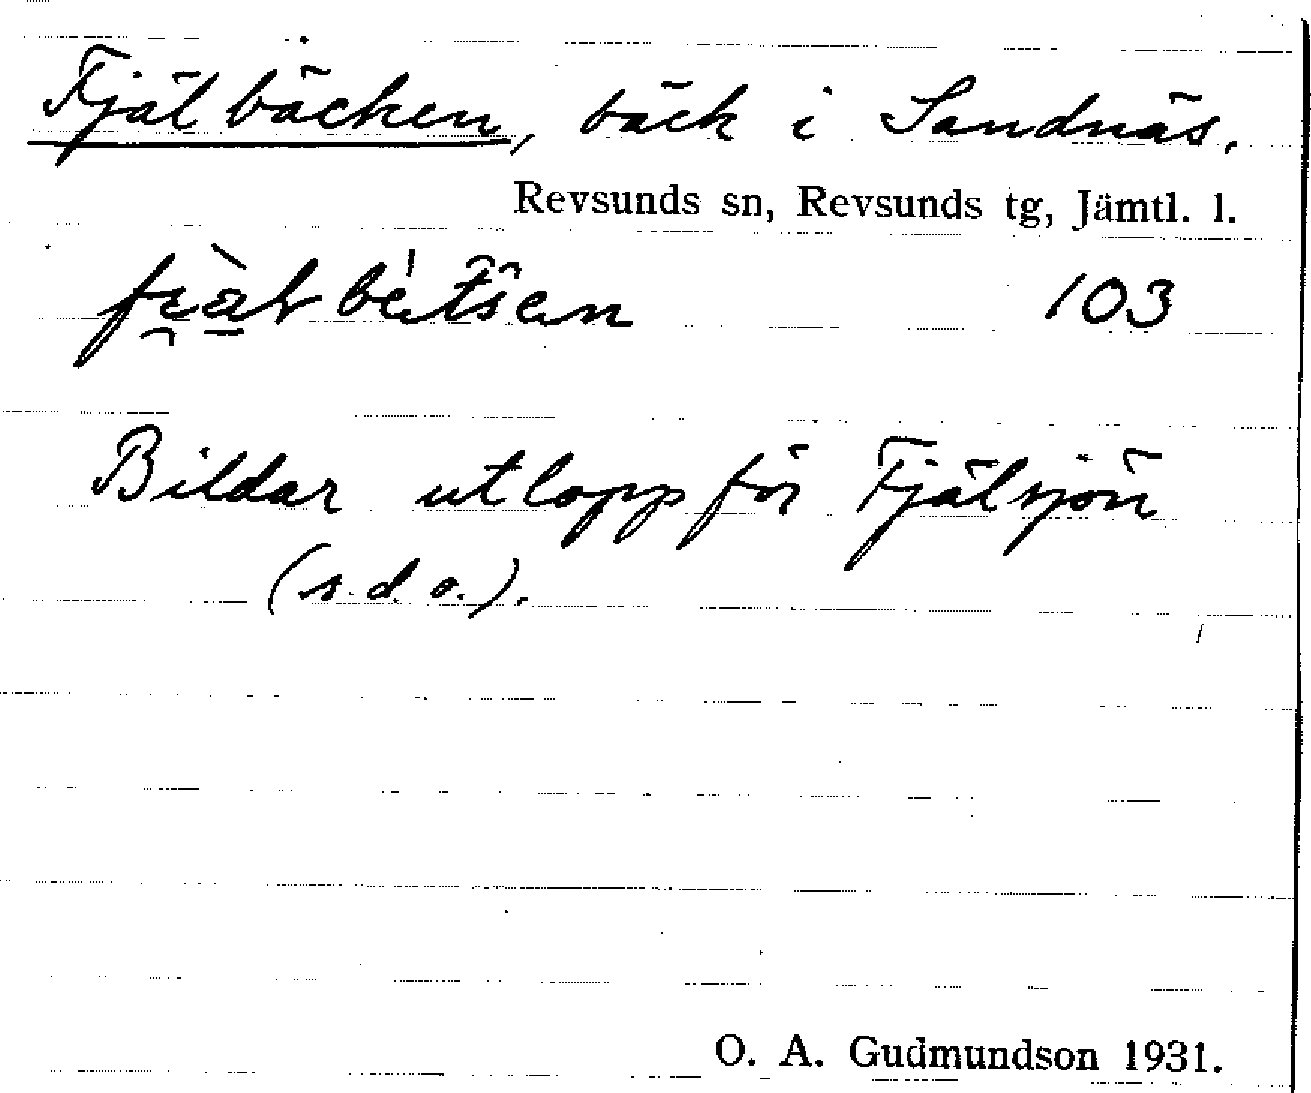 Fjälbäcken, bäck i Sandnäs.
Revsunds sn, Revsunds tg, Jämtl. l.
103
Bildar utlopp för Fjälsjön
(s. d. o.).
O. A. Gudmundson 1931.